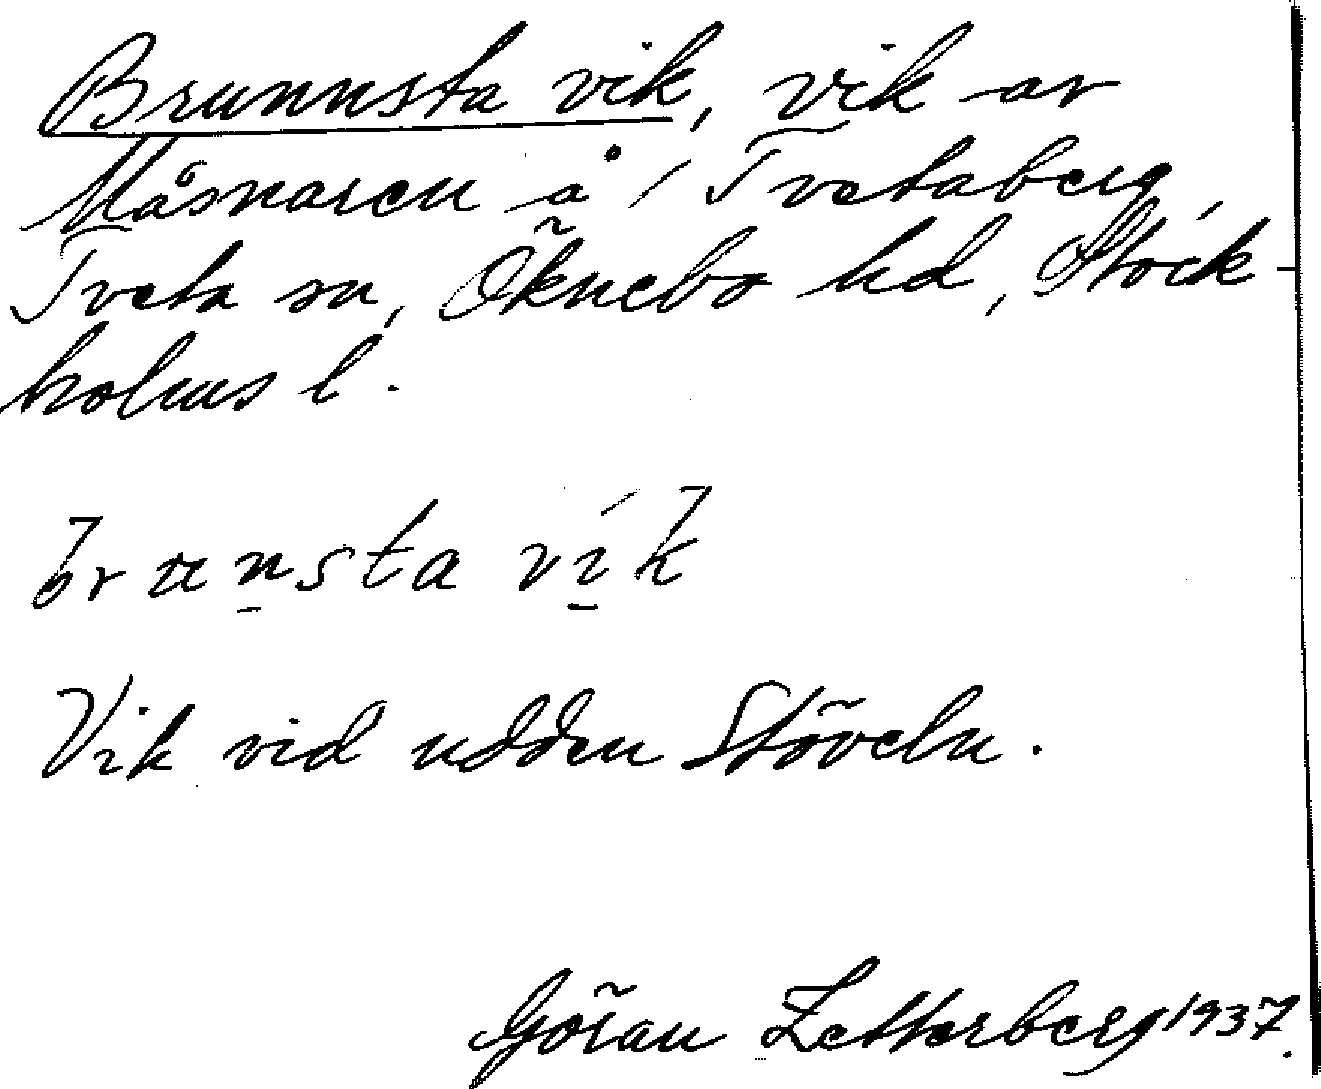 Brunnsta vik, vik av
Måsnaren å / Tvetaberg,
Tveta sn, Öknebo hd, Stock-
holms l.
brunsta vik
Vik vid udden Stöveln.
Göran Zetterberg 1937.